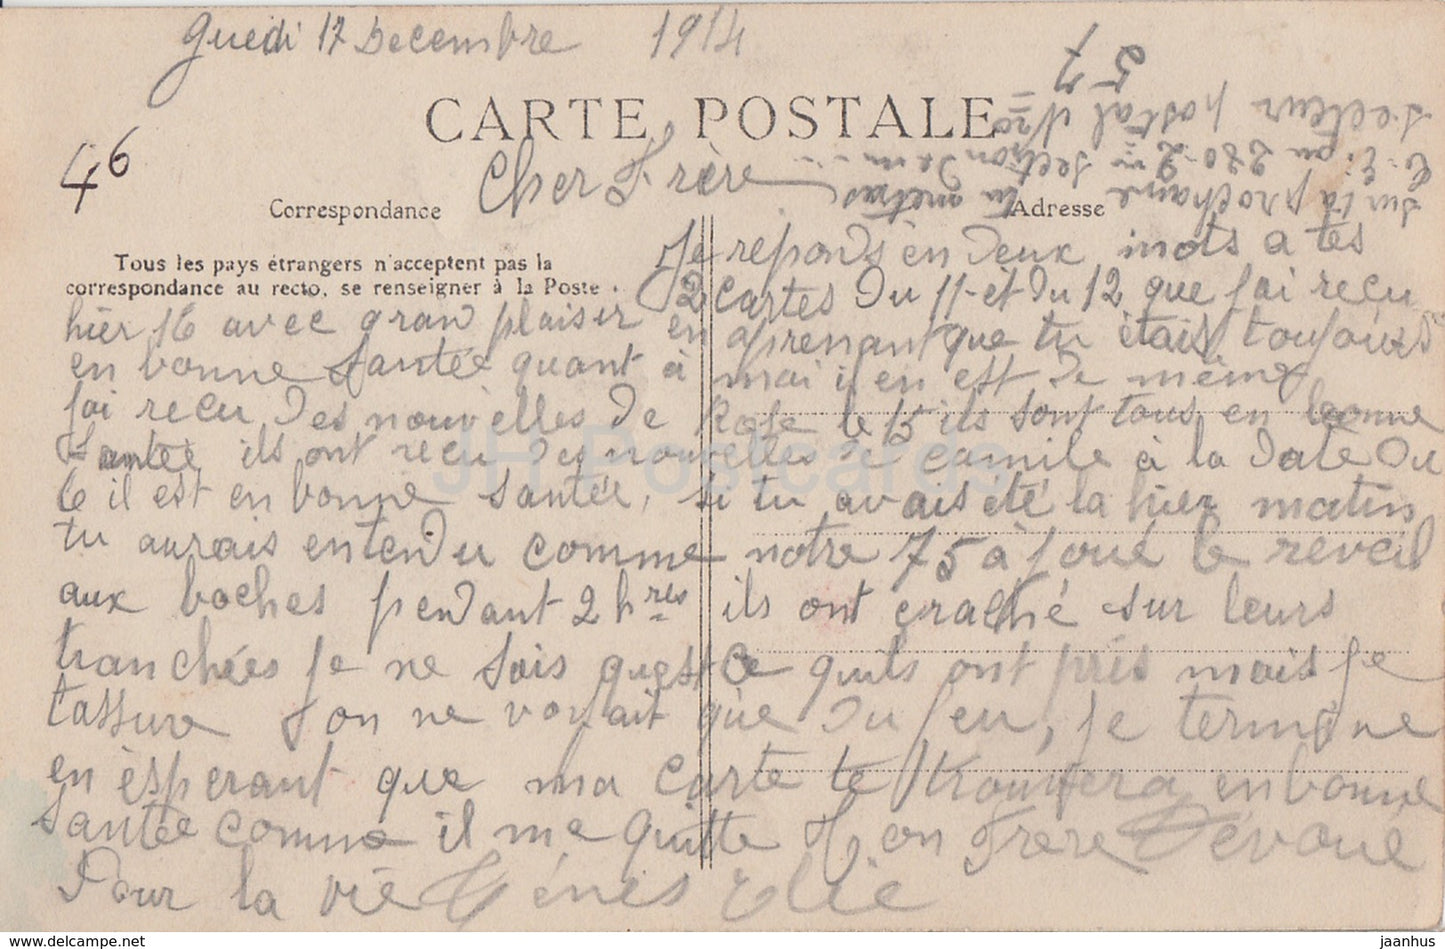 Guedi 17 Decembre 1914
CARTE POSTALE
46
Cher Frère
Correspondance
Adresse
Tous les pays étrangers n'acceptent pas la
correspondance au recto, se renseigner à la Poste.
Sur ta prochaine tu metras
280 2me section
Secteur postal Nro
57
Je reponds en deux mots a tes
2 cartes du 11 et du 12 que jai reçu
hier 16 avec gran plaisir en aprenant que tu étais toujours
en bonne santée quant à moi il en est de même
jai reçu des nouvelles de Rose le 15 ils sont tous en bonne
santée ils ont reçu des nouvelles de camile à la date du
6 il est en bonne santée, si tu avais été la hier matin
tu aurais entendu comme notre 75 à joué le reveil
aux boches pendant 2 hres ils ont crache sur leurs
tranchées je ne sais quest ce quils ont pris mais je
tassure on ne voyait que du feu, je termine
en esperant que ma carte te trouvera en bonne
santée comme il me quitte ton Frere Dévoué
Pour la vie Elie
JH Postcards
delcampe.net
jaanhus